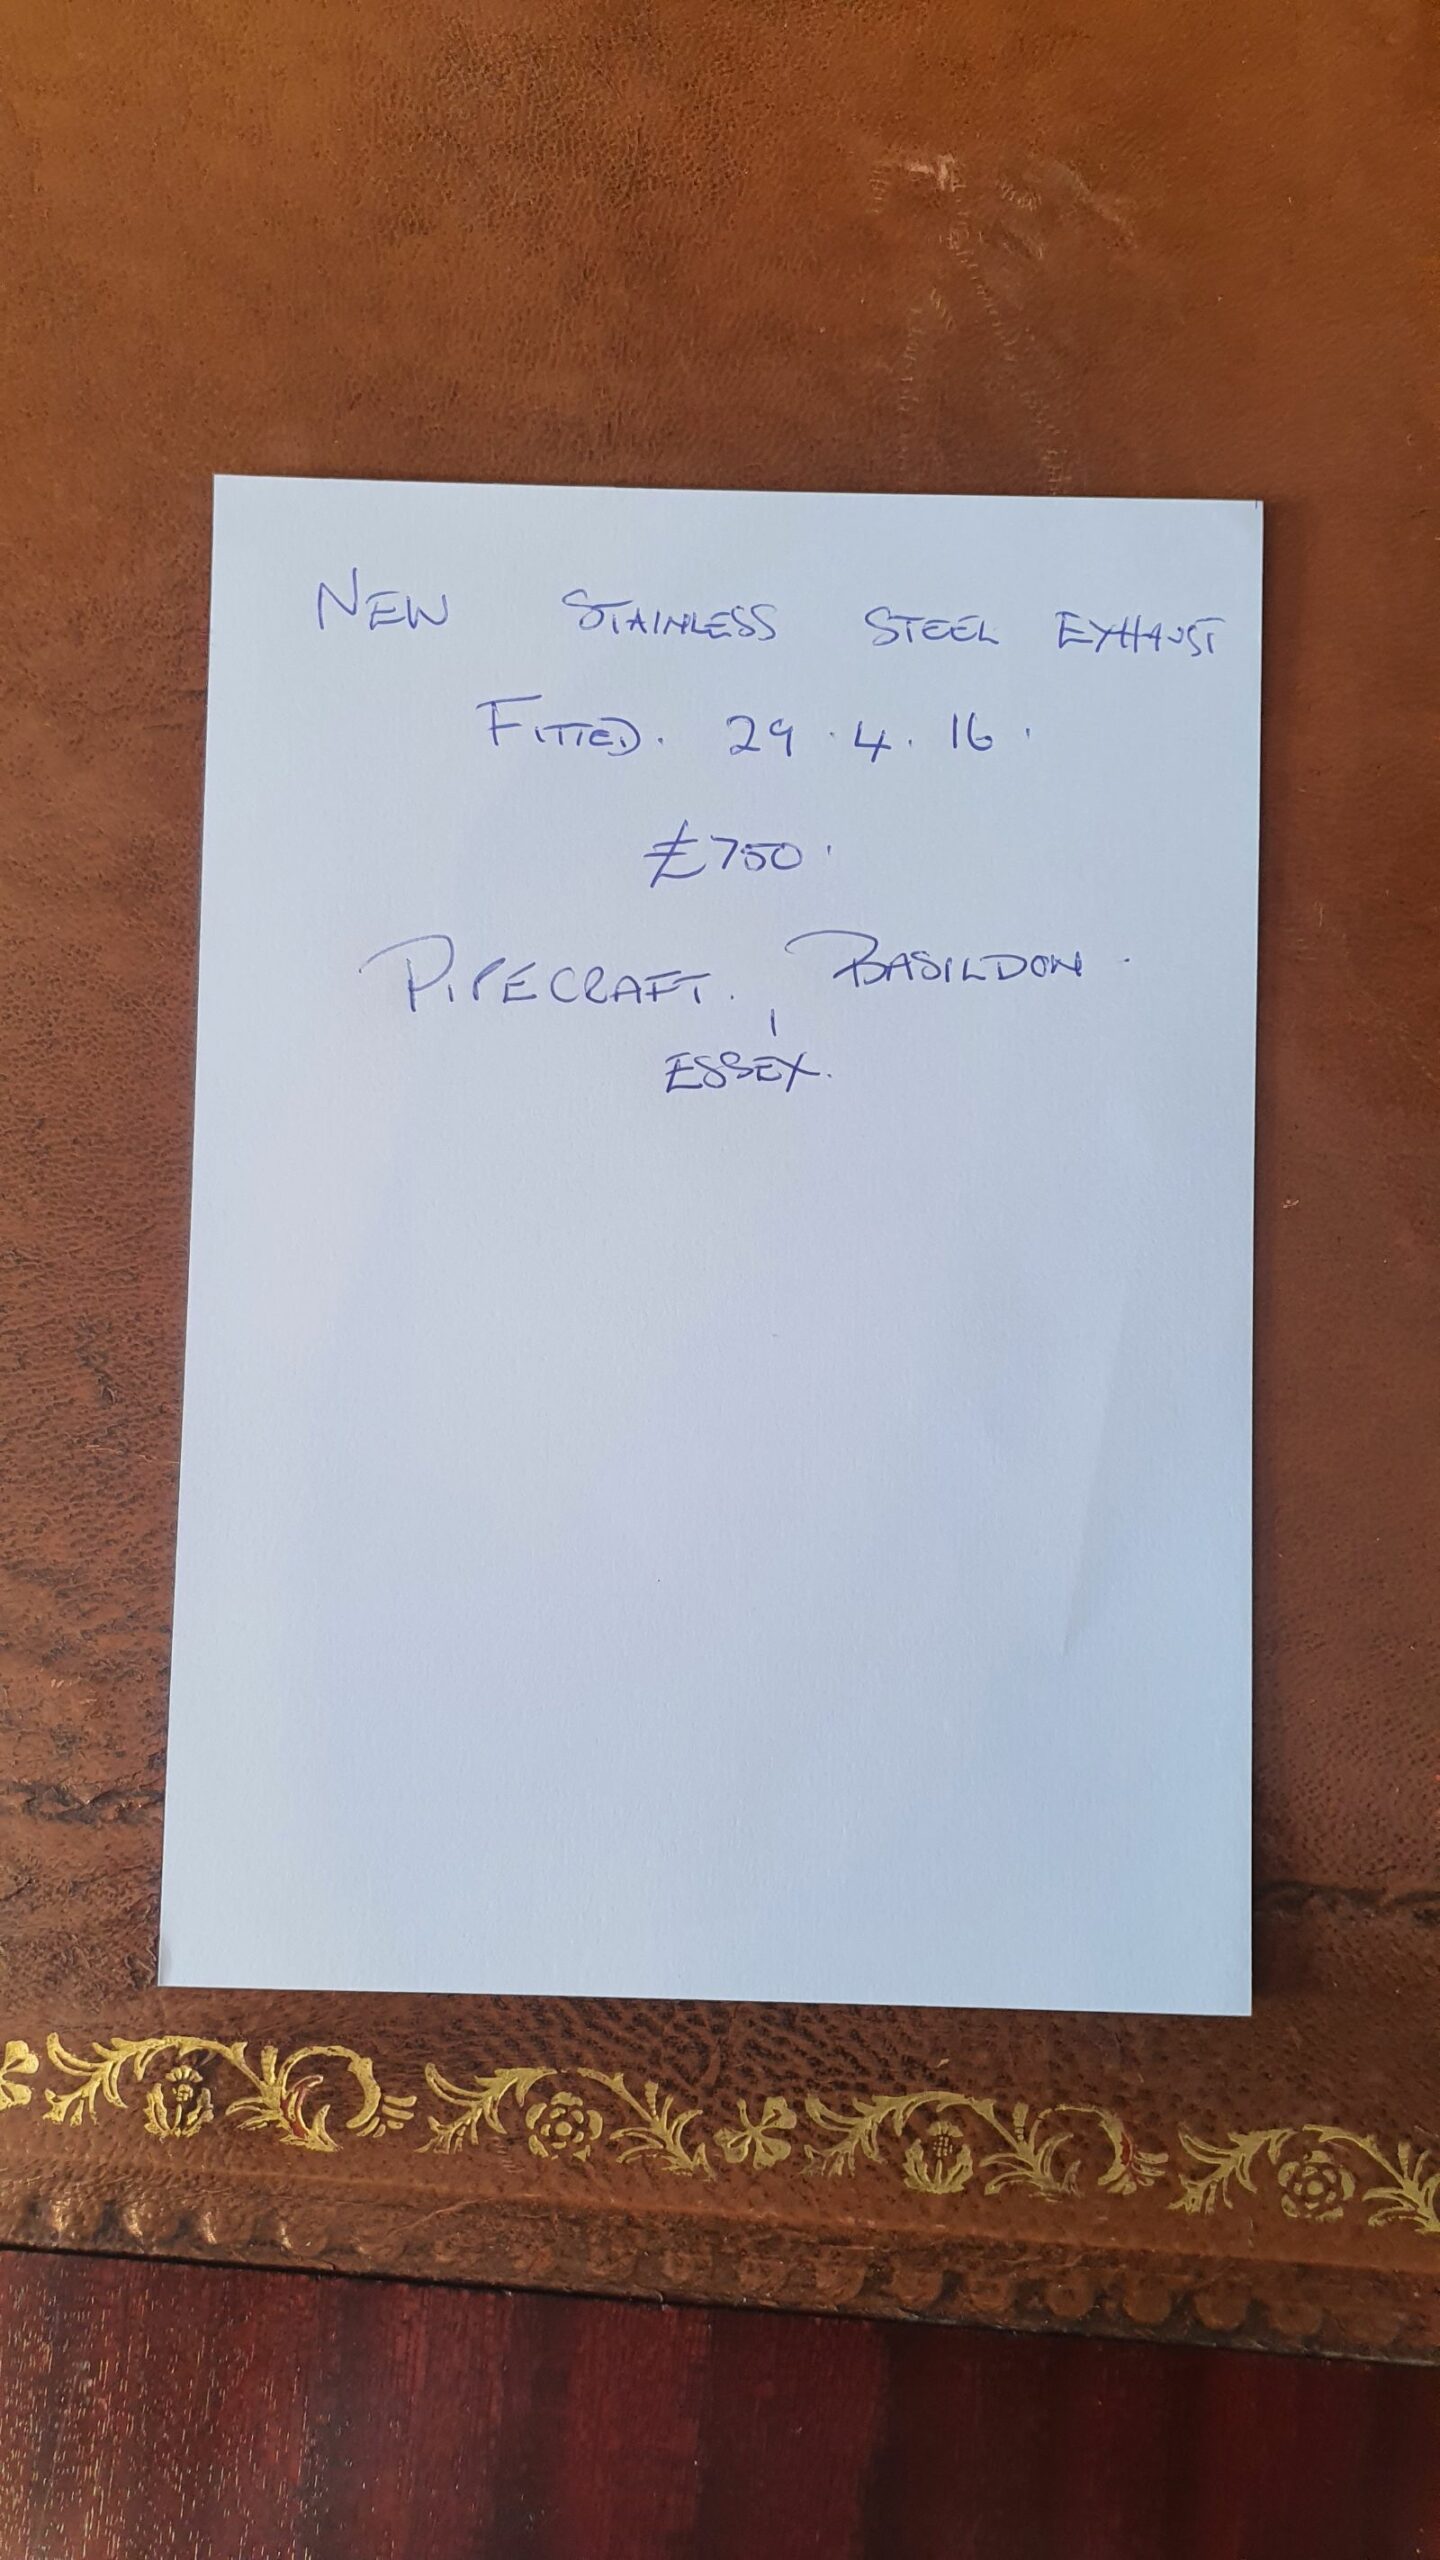 NEW STAINLESS STEEL EXHAUST
FITTED. 29.4.16.
£750.
PIPECRAFT. BASILDON.
ESSEX.